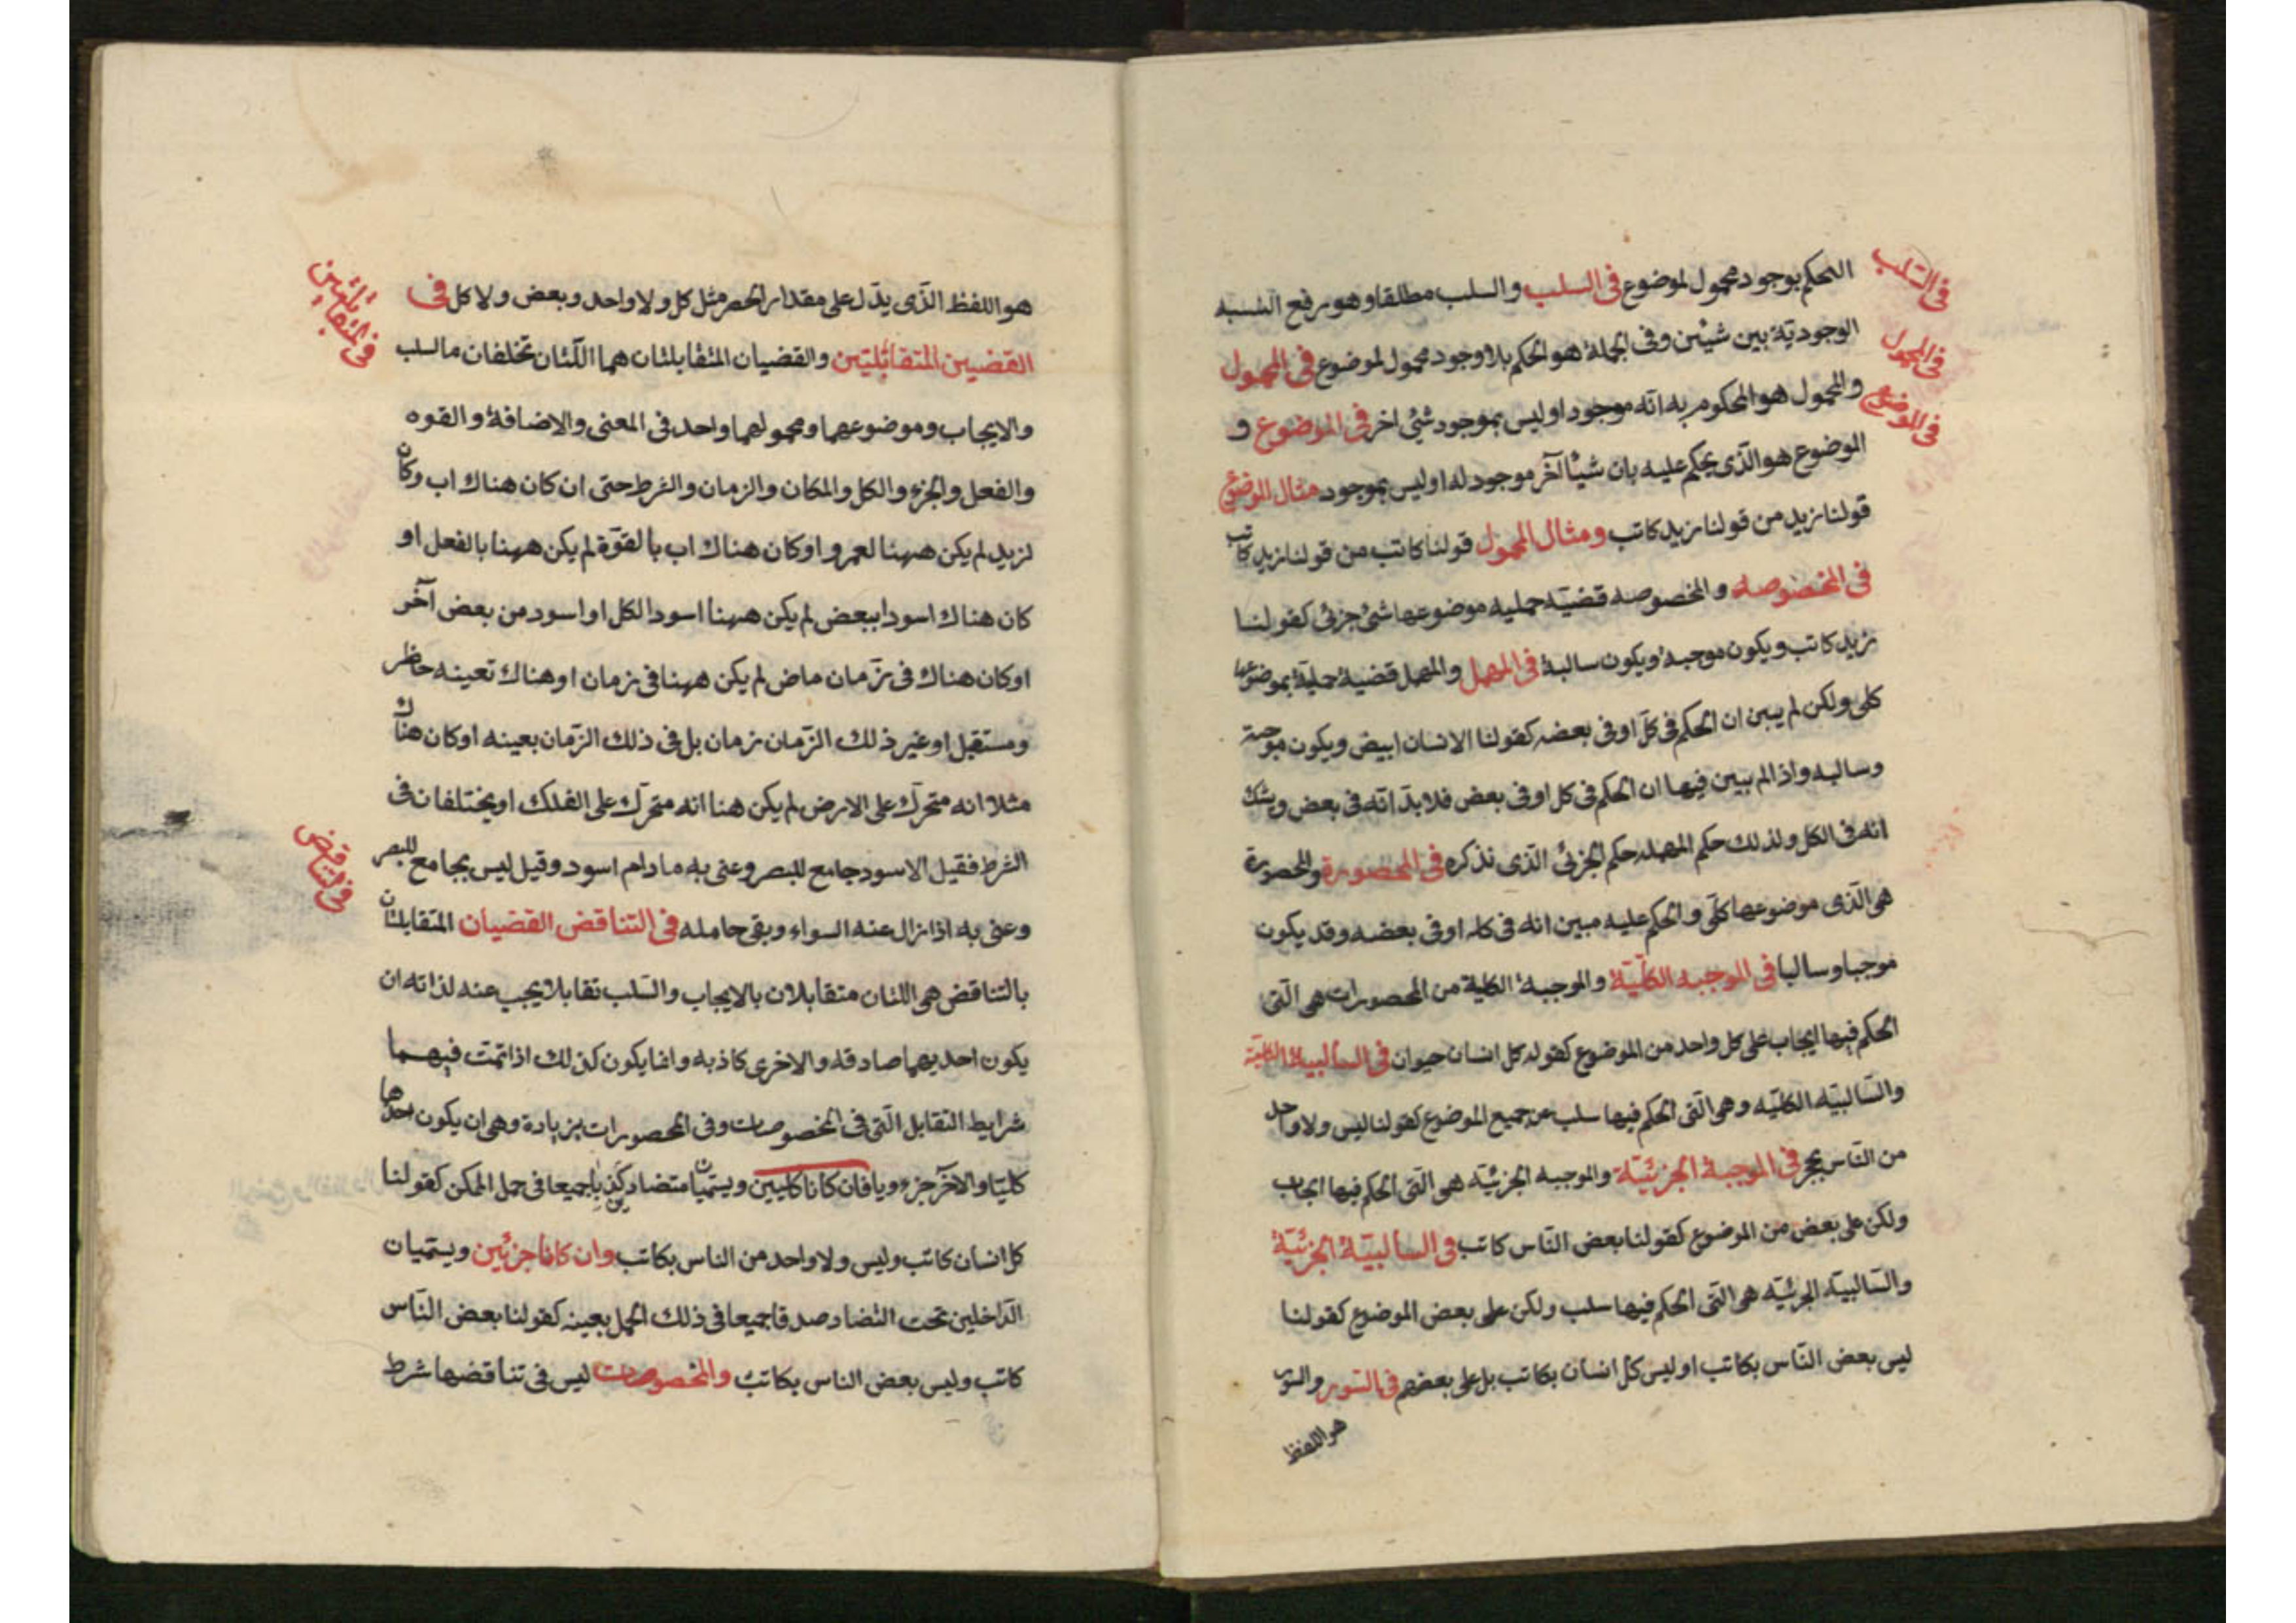 الحكم بوجود محمول لموضوع في السلب والسلب مطلقا وهو رفع النسبه
في السّلب
الوجوديّة بين شيئين وفي الجملة هو الحكم بلا وجود محمول لموضوع في المحمول
في المحمول
والمحمول هو المحكوم به انّه موجود او ليس بموجود شئ اخر في الموضوع و
في الموضوع
الموضوع هو الّذي يحكم عليه بان شيئا آخر موجود له او ليس بموجود مثال الموضوع
قولنا زيد من قولنا زيد كاتب ومثال المحمول قولنا كاتب من قولنا زيد كاتب
في المخصوصه والمخصوصه قضيّه حمليه موضوعها شئ جزئي كقولنا
زيد كاتب ويكون موجبة ويكون سالبة في المهمل والمهمل قضية حملية بموضوعها
كلي ولكن لم يبين ان الحكم في كلّ او في بعضه كقولنا الانسان ابيض ويكون موجبة
وسالبه واذا لم يبين فيها ان الحكم في كل او في بعض فلا بدّ انّه في بعض ويشك
انّه في الكل ولذلك حكم المهمله حكم الجزئي الّذي نذكره في المحصورة والمحصورة
هي الّذي موضوعها كلّي والحكم عليه مبين انه في كله او في بعضه وقد يكون
موجبا وسالبا في الموجبه الكلّيّة والموجبة الكلية من المحصورات هي الّتي
الحكم فيها ايجاب على كل واحد من الموضوع كقوله كل انسان حيوان في السالبية الكلية
والسّالبيّه الكليّه وهي الّتي الحكم فيها سلب عن جميع الموضوع كقولنا ليس ولا واحد
من النّاس بحجر في الموجبة الجزئيّة والموجبه الجزئيّه هي الّتي الحكم فيها ايجاب
ولكن على بعض من الموضوع كقولنا بعض النّاس كاتب في السالبيّة الجزئيّة
والسّالبيّه الجزئيّه هي الّتي الحكم فيها سلب ولكن على بعض الموضوع كقولنا
ليس بعض النّاس بكاتب او ليس كلّ انسان بكاتب بل على بعضهم في السّور والسّور
هو اللفظ
هو اللفظ الّذي يدّل على مقدار الحصر مثل كل ولا واحد وبعض ولا كل في
في المتقابلتين
القضيين المتقابلتين والقضيان المتقابلتان هما اللّتان تختلفان مالسلب
والايجاب وموضوعهما ومحمولهما واحد في المعنى والاضافة والقوه
والفعل والجزء والكل والمكان والزمان والشرط حتى ان كان هناك اب وكان
لزيد لم يكن ههنا لعمرو او كان هناك اب بالقوّة لم يكن ههنا بالفعل او
كان هناك اسود ببعض لم يكن ههنا اسود الكل او اسود من بعض آخر
او كان هناك في زمان ماض لم يكن ههنا في زمان او هناك تعينه حاظر
ومستقبل او غير ذلك الزّمان زمان بل في ذلك الزّمان بعينه او كان هناك
مثلا انه متحرّك على الارض لم يكن هنا انه متحرّك على الفلك او يختلفان في
الشرط فقيل الاسود جامع للبصر وعنى به مادام اسود وقيل ليس بجامع للبصر
في التناقض
وعنى به اذا زال عنه السواء وبقى حامله في التناقض القضيان المتقابلتان
بالتناقض هي اللتان متقابلان بالايجاب والسّلب تقابلا يجب عنه لذاته ان
يكون احديهما صادقه والاخرى كاذبه وانما يكون كذلك اذا تمّت فيهما
شرايط التقابل الّتي في المخصوصات وفي المحصورات بزيادة وهي ان يكون احدها
كليّا والآخر جزءويا فان كانا كليين ويسمّيان متضاد كذبا جميعا في حمل الممكن كقولنا
كل انسان كاتب وليس ولا واحد من الناس بكاتب وان كانا جزئين ويسمّيان
الدّاخلين تحت التضاد صدقا جميعا في ذلك الحمل بعينه كقولنا بعض النّاس
كاتب وليس بعض الناس بكاتب والمخصوصات ليس في تناقضها شرط